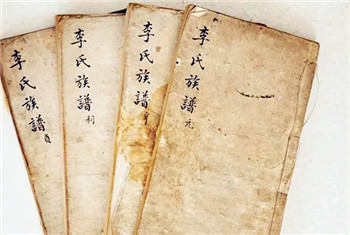 李氏族譜 元
李氏族譜 亨
李氏族譜 利
李氏族譜 貞